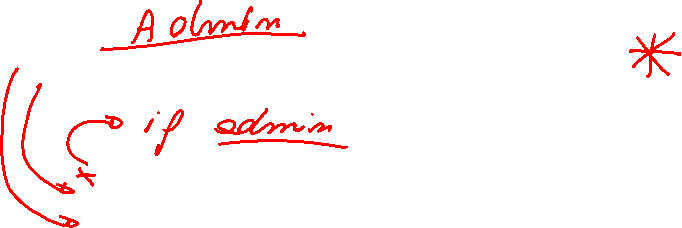 Admin
if admin